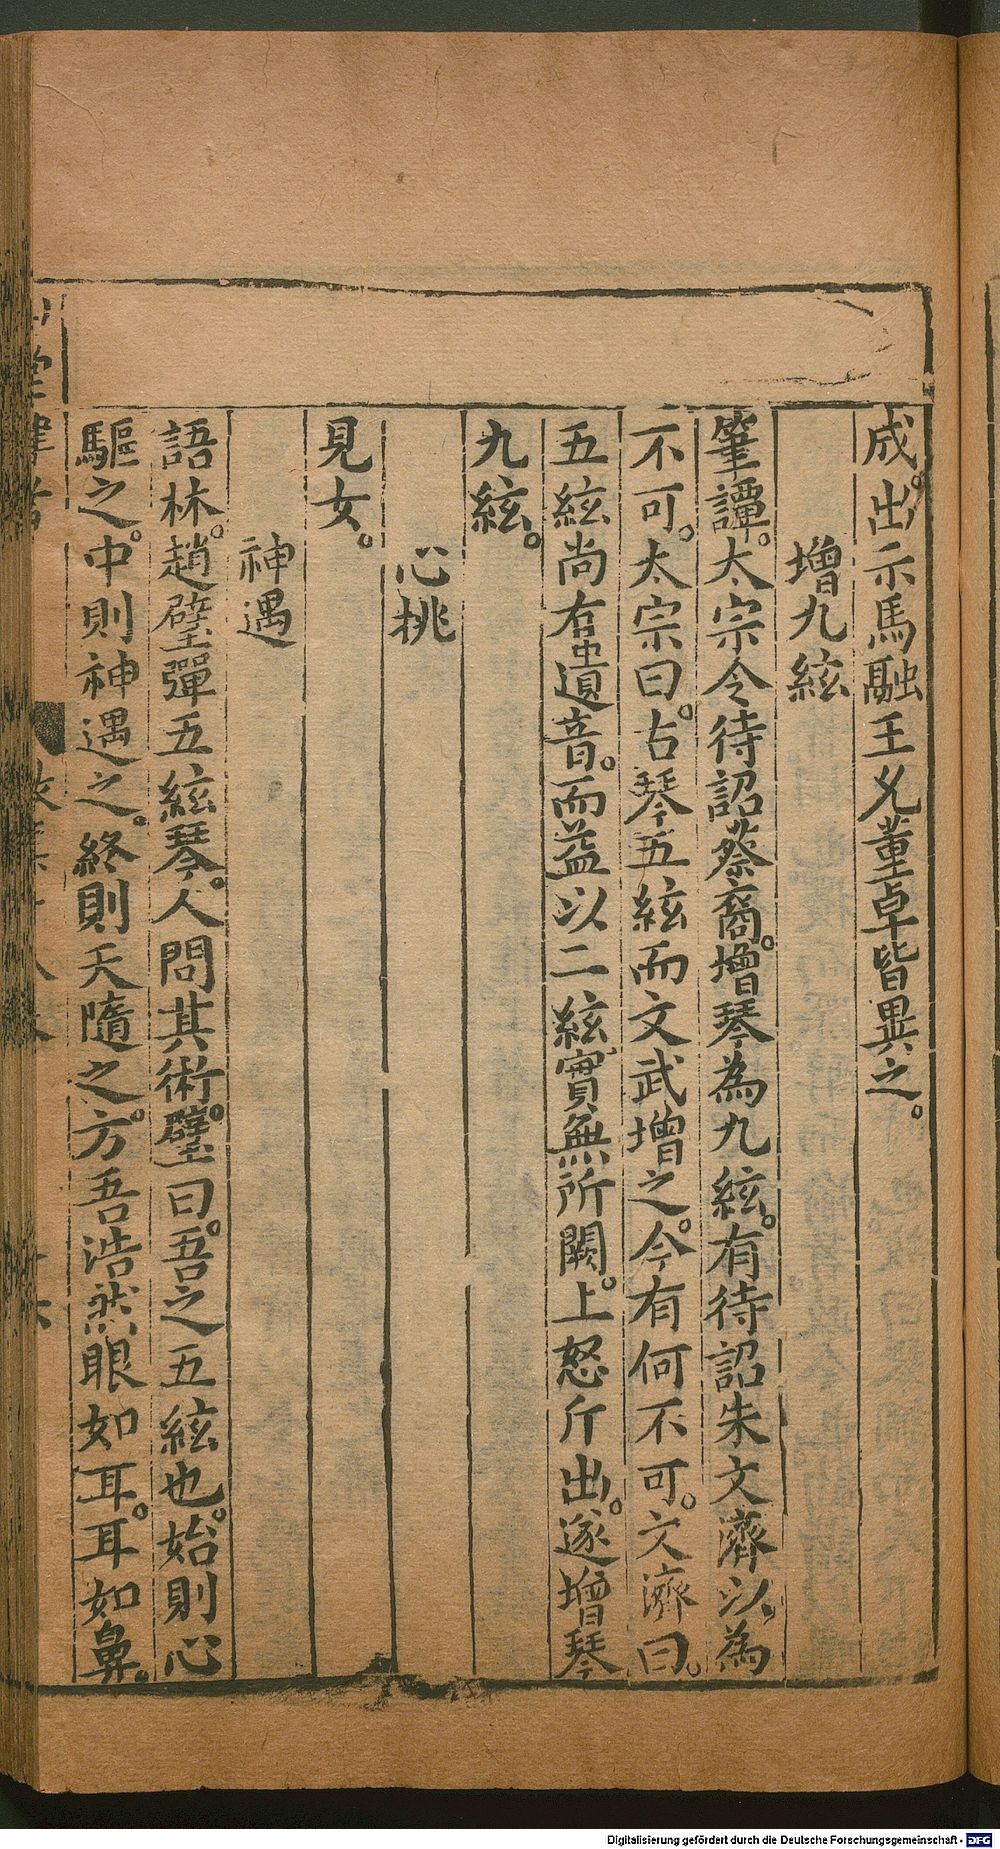 成。出示馬融王允董卓皆異之。
增九絃
筆譚。太宗令待詔蔡裔。增琴為九絃。有待詔朱文濟以為
不可。太宗曰。古琴五絃而文武增之。今有何不可。文濟曰。
五絃尚有遺音。而益以二絃實無所闕。上怒斥出。遂增琴
九絃。
心挑
見女。
神遇
語林。趙璧彈五絃琴。人問其術。璧曰。吾之五絃也。始則心
驅之。中則神遇之。終則天隨之。方吾浩然眼如耳。耳如鼻。
Digitalisierung gefördert durch die Deutsche Forschungsgemeinschaft - DFG